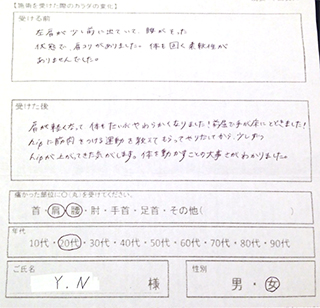 【施術を受けた際のカラダの変化】
受ける前
左肩が少し前に出ていて、腰がそった
状態で、肩コリがありました。体も固く柔軟性が
ありませんでした。
受けた後
肩が軽くなって体もだいぶやわらかくなりました!前屈で手が床にとどきました!
hipに筋肉をつける運動を教えてもらってやりだしてから、少しずつ
hipが上がってきた気がします。体を動かすことの大事さがわかりました。
痛かった部位に○(丸)を受けてください。
首・肩・腰・肘・手首・足首・その他( )
年代
10代・20代・30代・40代・50代・60代・70代・80代・90代
ご氏名
Y.N 様
性別
男・女